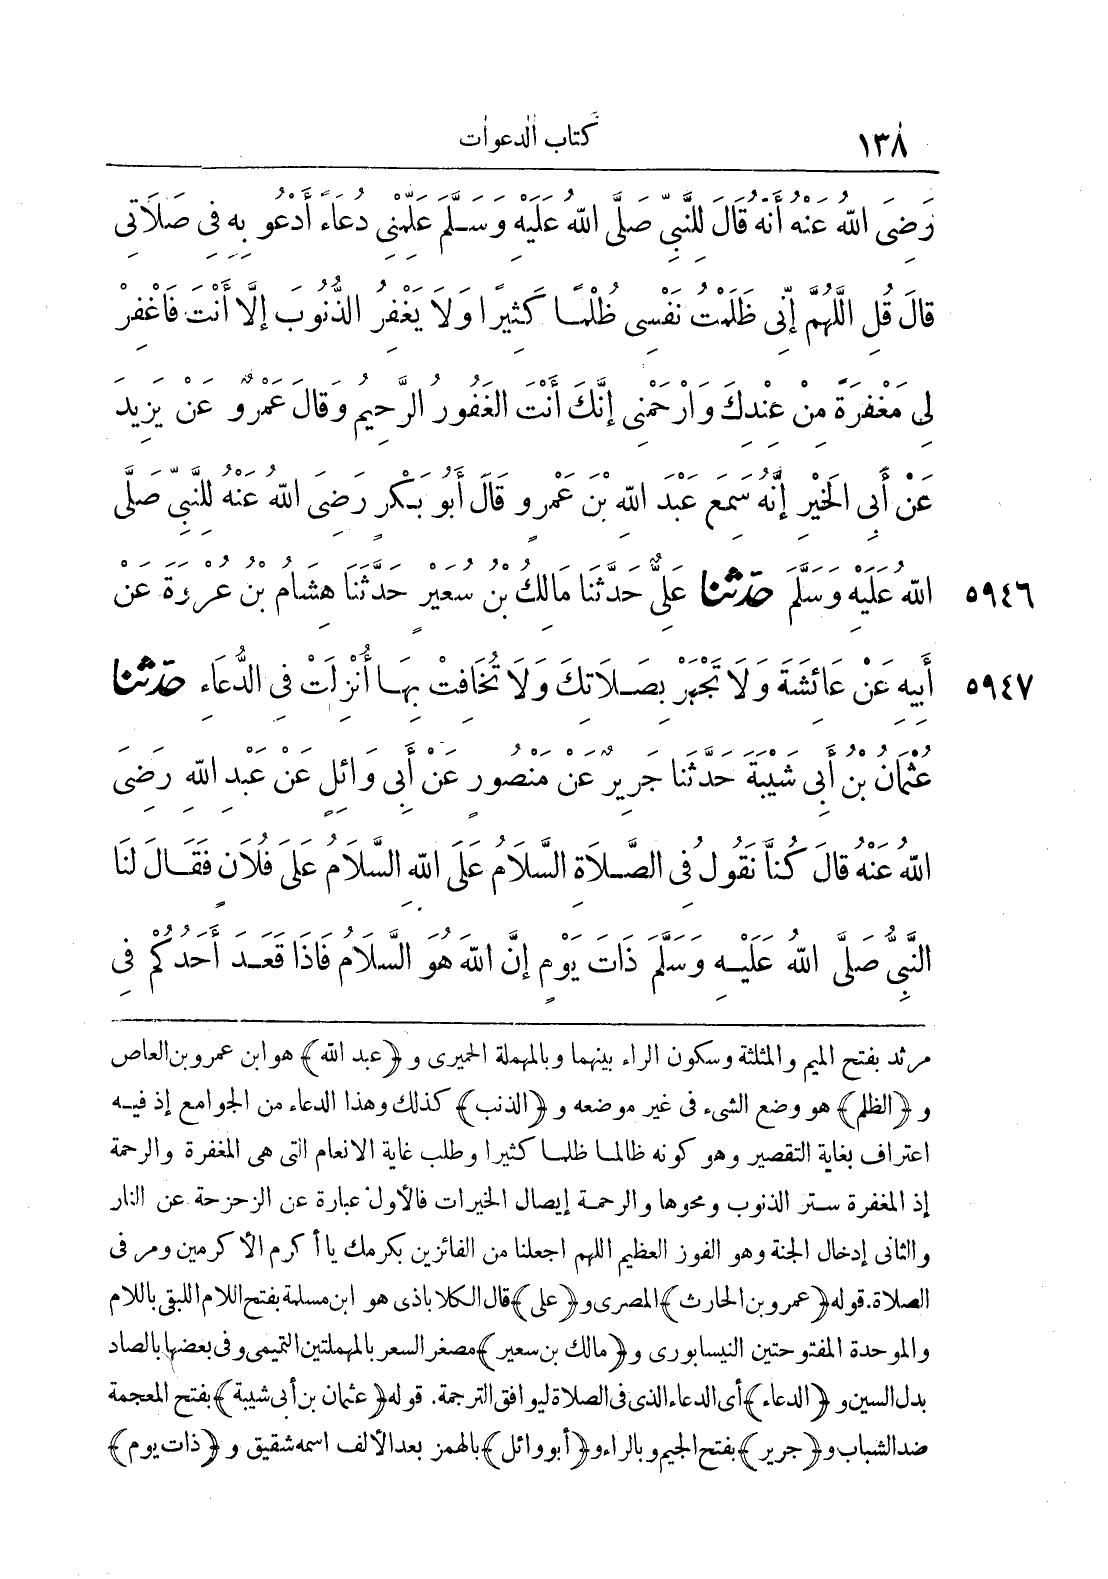 ١٣٨
كتاب الدعوات
رَضِىَ اللهُ عَنْهُ أَنَّهُ قَالَ لِلنَّبِىِّ صَلَّى اللهُ عَلَيْهِ وَسَلَّمَ عَلِّمْنِى دُعَاءً أَدْعُو بِهِ فِى صَلَاتِى
قَالَ قُلِ اللَّهُمَّ إِنِّى ظَلَمْتُ نَفْسِى ظُلْمًا كَثِيرًا وَلَا يَغْفِرُ الذُّنُوبَ إِلَّا أَنْتَ فَاغْفِرْ
لِى مَغْفِرَةً مِنْ عِنْدِكَ وَارْحَمْنِى إِنَّكَ أَنْتَ الغَفُورُ الرَّحِيمُ وَقَالَ عَمْرٌو عَنْ يَزِيدَ
عَنْ أَبِى الخَيْرِ إِنَّهُ سَمِعَ عَبْدَ اللهِ بْنَ عَمْرٍو قَالَ أَبُو بَكْرٍ رَضِىَ اللهُ عَنْهُ لِلنَّبِىِّ صَلَّى
٥٩٤٦ اللهُ عَلَيْهِ وَسَلَّمَ حَدَّثَنَا عَلِىٌّ حَدَّثَنَا مَالِكُ بْنُ سُعَيْرٍ حَدَّثَنَا هِشَامُ بْنُ عُرْوَةَ عَنْ
٥٩٤٧ أَبِيهِ عَنْ عَائِشَةَ وَلَا تَجْهَرْ بِصَلَاتِكَ وَلَا تُخَافِتْ بِهَا أُنْزِلَتْ فِى الدُّعَاءِ حَدَّثَنَا
عُثْمَانُ بْنُ أَبِى شَيْبَةَ حَدَّثَنَا جَرِيرٌ عَنْ مَنْصُورٍ عَنْ أَبِى وَائِلٍ عَنْ عَبْدِ اللهِ رَضِىَ
اللهُ عَنْهُ قَالَ كُنَّا نَقُولُ فِى الصَّلَاةِ السَّلَامُ عَلَى اللهِ السَّلَامُ عَلَى فُلَانٍ فَقَالَ لَنَا
النَّبِىُّ صَلَّى اللهُ عَلَيْهِ وَسَلَّمَ ذَاتَ يَوْمٍ إِنَّ اللهَ هُوَ السَّلَامُ فَاذَا قَعَدَ أَحَدُكُمْ فِى
مرثد بفتح الميم والمثلثة وسكون الراء بينهما وبالمهملة الحميرى و﴿عبد الله﴾ هو ابن عمرو بن العاص
و﴿الظلم﴾ هو وضع الشىء فى غير موضعه و﴿الذنب﴾ كذلك وهذا الدعاء من الجوامع إذ فيه
اعتراف بغاية التقصير وهو كونه ظالما ظلما كثيرا وطلب غاية الانعام التى هى المغفرة والرحمة
إذ المغفرة ستر الذنوب ومحوها والرحمة إيصال الخيرات فالأول عبارة عن الزحزحة عن النار
والثانى إدخال الجنة وهو الفوز العظيم اللهم اجعلنا من الفائزين بكرمك يا أكرم الأكرمين ومر فى
الصلاة. قوله ﴿عمرو بن الحارث﴾ المصرى و﴿على﴾ قال الكلاباذى هو ابن مسلمة بفتح اللام اللبقى باللام
والموحدة المفتوحتين النيسابورى و﴿مالك بن سعير﴾ مصغر السعر بالمهملتين التميمى وفى بعضها بالصاد
بدل السين و﴿الدعاء﴾ أى الدعاء الذى فى الصلاة ليوافق الترجمة. قوله ﴿عثمان بن أبى شيبة﴾ بفتح المعجمة
ضد الشباب و﴿جرير﴾ بفتح الجيم وبالراء و﴿أبو وائل﴾ بالهمز بعد الألف اسمه شقيق و﴿ذات يوم﴾